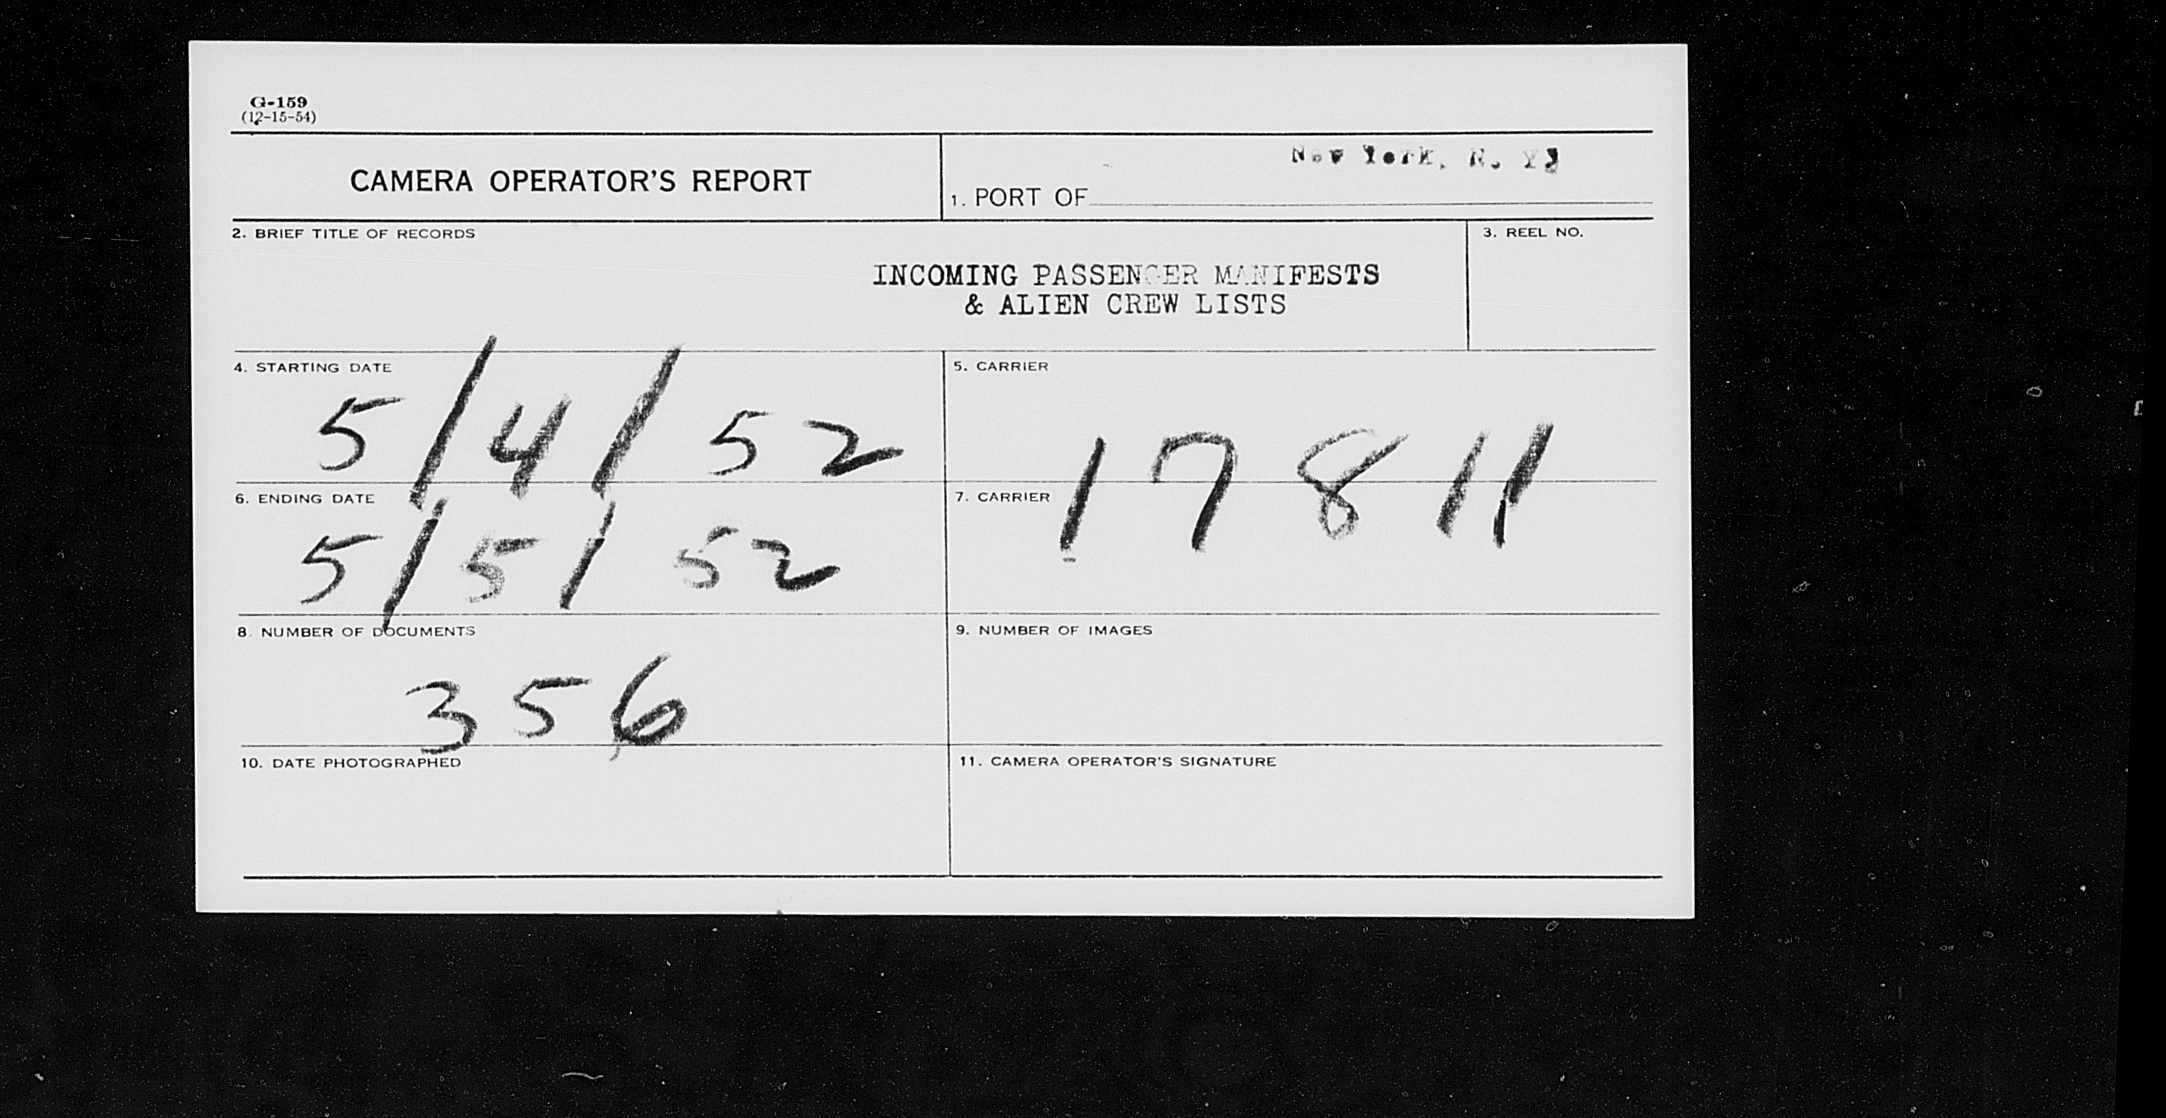 G-159
(12-15-54)
CAMERA OPERATOR'S REPORT
New York, N. Y.
1. PORT OF
2. BRIEF TITLE OF RECORDS
3. REEL NO.
INCOMING PASSENGER MANIFESTS
& ALIEN CREW LISTS
4. STARTING DATE
5/4/52
5. CARRIER
17811
6. ENDING DATE
5/5/52
7. CARRIER
8. NUMBER OF DOCUMENTS
356
9. NUMBER OF IMAGES
10. DATE PHOTOGRAPHED
11. CAMERA OPERATOR'S SIGNATURE